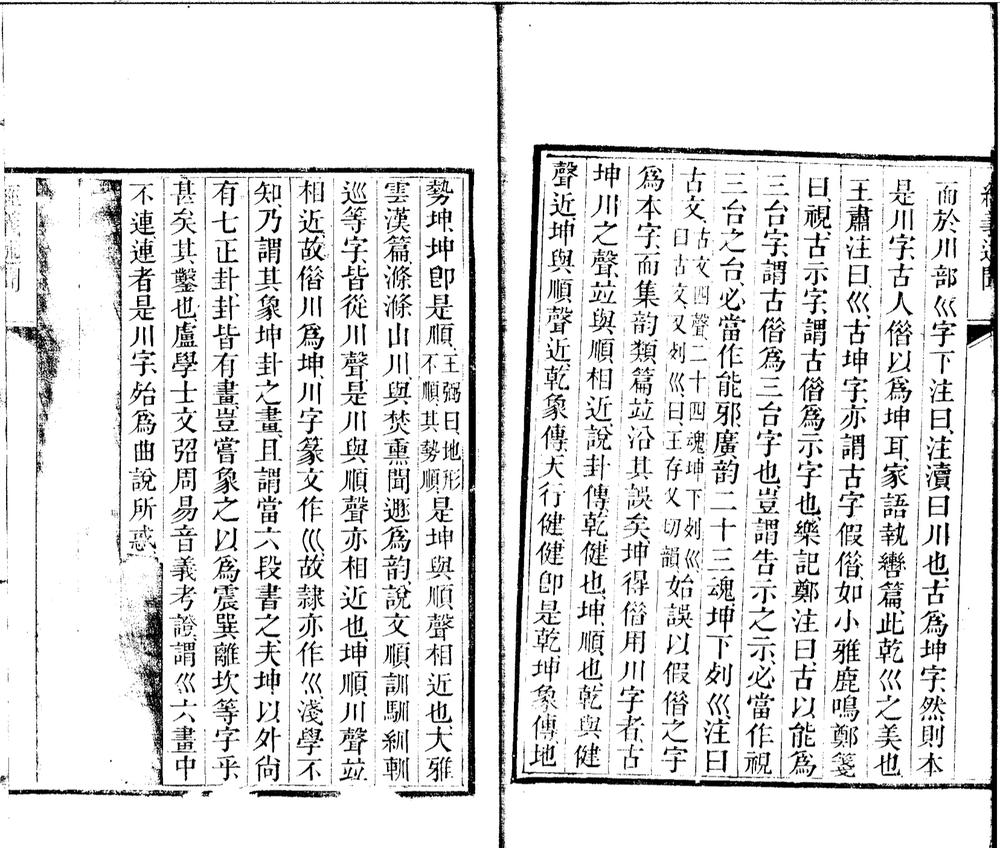 經義述聞
而於川部巛字下注曰注瀆曰川也古爲坤字然則本
是川字古人借以爲坤耳家語執轡篇此乾巛之美也
王肅注曰巛古坤字亦謂古字假借如小雅鹿鳴鄭箋
曰視古示字謂古借爲示字也樂記鄭注曰古以能爲
三台字謂古借爲三台字也豈謂告示之示必當作視
三台之台必當作能邪廣韵二十三魂坤下列巛注曰
古文古文四聲二十四魂坤下列巛曰古文又列巛曰王存乂切韻始誤以假借之字
爲本字而集韵類篇竝沿其誤矣坤得借用川字者古
坤川之聲竝與順相近說卦傳乾健也坤順也乾與健
聲近坤與順聲近乾象傳天行健健卽是乾坤象傳地
勢坤坤卽是順王弼曰地形不順其勢順是坤與順聲相近也大雅
雲漢篇滌滌山川與焚熏聞遯爲韵說文順訓馴紃軕
巡等字皆從川聲是川與順聲亦相近也坤順川聲竝
相近故借川爲坤川字篆文作巛故隸亦作巛淺學不
知乃謂其象坤卦之畫且謂當六段書之夫坤以外尙
有七正卦卦皆有畫豈嘗象之以爲震巽離坎等字乎
甚矣其鑿也盧學士文弨周易音義考證謂巛六畫中
不連連者是川字殆爲曲說所惑